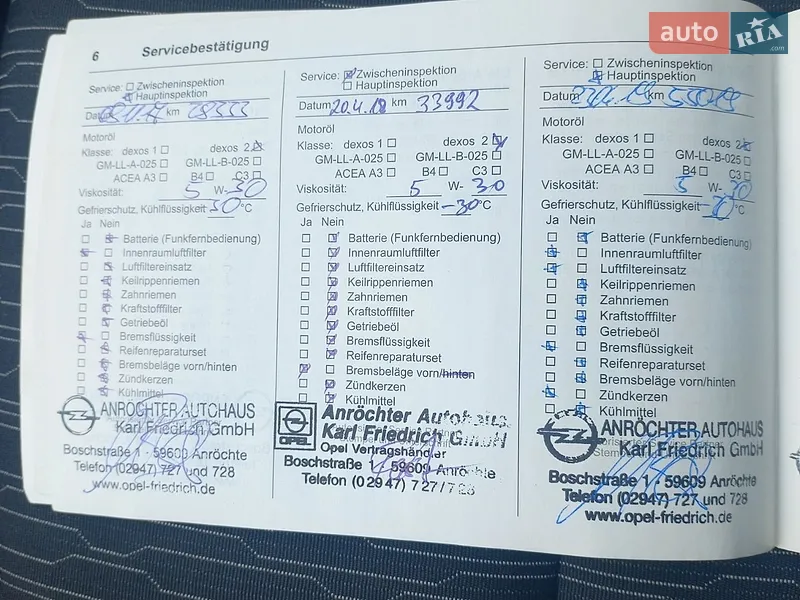 auto RIA.com
6 Servicebestätigung
Service: Zwischeninspektion
Hauptinspektion
Datum km 28333
Motoröl
Klasse: dexos 1 dexos 2
GM-LL-A-025 GM-LL-B-025
ACEA A3 B4 C3
Viskosität: 5 W-30
Gefrierschutz, Kühlflüssigkeit -30 °C
Ja Nein
Batterie (Funkfernbedienung)
Innenraumluftfilter
Luftfiltereinsatz
Keilrippenriemen
Zahnriemen
Kraftstofffilter
Getriebeöl
Bremsflüssigkeit
Reifenreparaturset
Bremsbeläge vorn/hinten
Zündkerzen
Kühlmittel
ANRÖCHTER AUTOHAUS
Karl Friedrich GmbH
Boschstraße 1 · 59609 Anröchte
Telefon (02947) 727 und 728
www.opel-friedrich.de
Service: Zwischeninspektion
Hauptinspektion
Datum 20.4.18 km 33992
Motoröl
Klasse: dexos 1 dexos 2
GM-LL-A-025 GM-LL-B-025
ACEA A3 B4 C3
Viskosität: 5 W- 30
Gefrierschutz, Kühlflüssigkeit -30 °C
Ja Nein
Batterie (Funkfernbedienung)
Innenraumluftfilter
Luftfiltereinsatz
Keilrippenriemen
Zahnriemen
Kraftstofffilter
Getriebeöl
Bremsflüssigkeit
Reifenreparaturset
Bremsbeläge vorn/hinten
Zündkerzen
Kühlmittel
Anröchter Autohaus
Karl Friedrich GmbH
OPEL Opel Vertragshändler
Boschstraße 1 · 59609 Anröchte
Telefon (02947) 727/728
Service: Zwischeninspektion
Hauptinspektion
Datum km
Motoröl
Klasse: dexos 1 dexos 2
GM-LL-A-025 GM-LL-B-025
ACEA A3 B4 C3
Viskosität: 5 W-30
Gefrierschutz, Kühlflüssigkeit °C
Ja Nein
Batterie (Funkfernbedienung)
Innenraumluftfilter
Luftfiltereinsatz
Keilrippenriemen
Zahnriemen
Kraftstofffilter
Getriebeöl
Bremsflüssigkeit
Reifenreparaturset
Bremsbeläge vorn/hinten
Zündkerzen
Kühlmittel
ANRÖCHTER AUTOHAUS
Karl Friedrich GmbH
Boschstraße 1 · 59609 Anröchte
Telefon (02947) 727 und 728
www.opel-friedrich.de